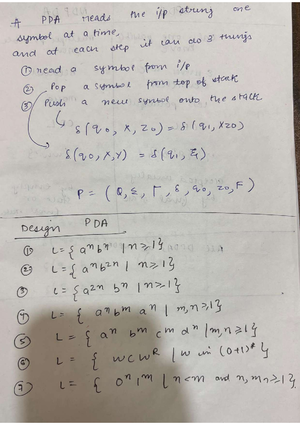 A PDA reads the i/p string one
symbol at a time,
and at each step it can do 3 things
① read a symbol from i/p
② Pop a symbol from top of stack
③ Push a new symbol onto the stack
δ(q0, X, Z0) = δ(q1, XZ0)
δ(q0, X, Y) = δ(q1, Σ)
P = (Q, Σ, Γ, δ, q0, z0, F)
Design PDA
① L = { a^n b^n | n≥1 }
② L = { a^n b^2n | n≥1 }
③ L = { a^2n b^n | n≥1 }
④ L = { a^n b^m a^n | m,n≥1 }
⑤ L = { a^n b^m c^m d^n | m,n≥1 }
⑥ L = { w c w^R | w in (0+1)* }
⑦ L = { 0^n 1^m | n<m and n,m≥1 }